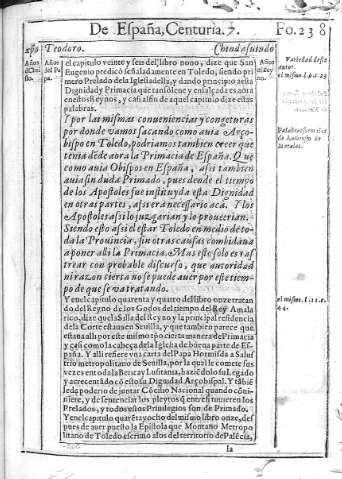 De España, Centuria. 7.
Fo. 238
xpō Teodoro.
Chendasuindo
Años
Años
del Pa
el capitulo veinte y seis del libro nono, dize que San
Eugenio predicò señaladamente en Toledo, siendo pri-
mero Prelado de la Iglesia della, y dando principio a esta
Dignidad y Primacia que tan solene y ensalçada es aora
en estos Reynos, y casi al fin de aquel capitulo dize estas
palabras.
I por las mismas conueniencias y congeturas
por donde vamos sacando como auia Arço-
bispo en Toledo, podriamos tambien creer que
tenia desde aora la Primacia de España. Que
como auia Obispos en España, assi tambien
auia sin duda Primado, pues desde el tiempo
de los Apostoles fue instituyda esta Dignidad
en otras partes, assi era necessario acà. I los
Apostoles assi lo juzgarian y lo proueerian.
Siendo esto assi el estar Toledo en medio de to-
da la Prouincia, sin otras causas combidaua
a poner alli la Primacia. Mas este solo es ras-
trear con probable discurso, que autoridad
ni razon cierta no se puede auer por este tiem-
po de que se va tratando.
Y en el capitulo quarenta y quatro del libro onze tratan-
do del Reyno de los Godos del tiempo del Rey Amala
rico, dize que la Silla del Reyno y la principal residencia
de la Corte estaua en Seuilla, y que tambien parece que
estaua alli por este mismo tpo cierta manera de Primacia
y casi como la cabeça de la Iglesia de buena parte de Es-
paña. Y alli refiere vna carta del Papa Hormisda a Salus
trio metropolitano de Seuilla, por la qual le comete sus
vezes en toda la Betica y Lusitania, haziédolo su Legado
y acrecentádo cō esto su Dignidad Arçobispal. Y tābié
le da poderio de juntar Cōcilio Nacional quando cōui-
niere, y de sentenciar los pleytos q̄ entre si tuuieren los
Prelados, y todos estos Priuilegios son de Primado.
Y en el capitulo quarēta y ocho del mismo libro onze, des
pues de auer puesto la Epistola que Montano Metropo
litano de Toledo escriuio a los del territorio de Palēcia,
la
Variedad deste
autor.
el mismo l.9.c.23
Palabras formales
de Ambrosio de
Morales.
el mismo. l.11.c.
44.